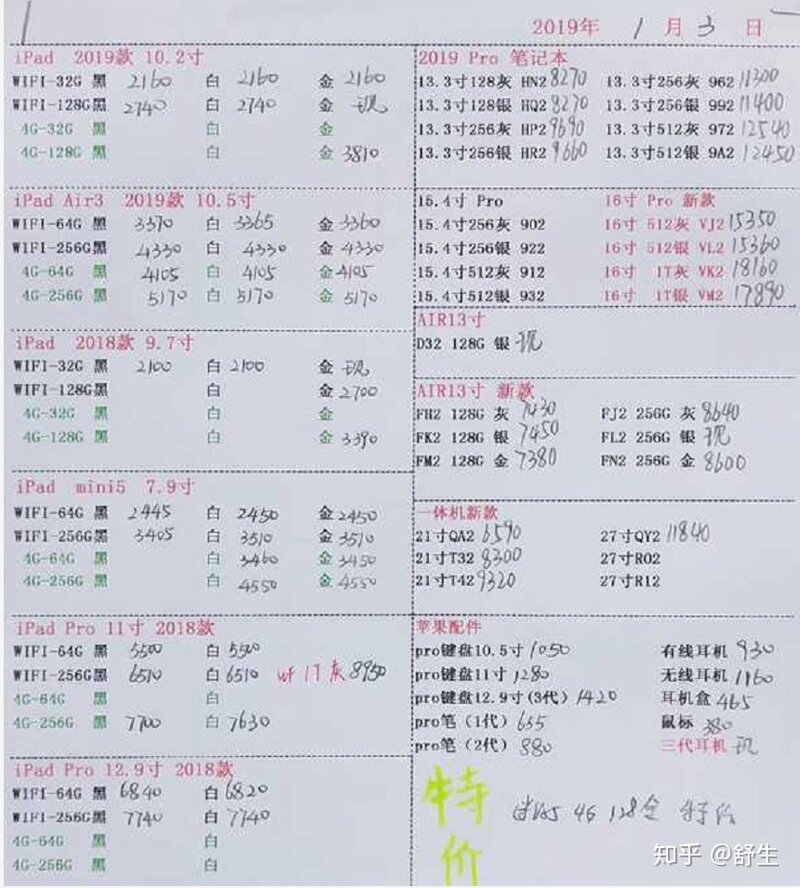 2019年 1 月 3 日
iPad 2019款 10.2寸
WIFI-32G 黑 2160 白 2160 金 2160
WIFI-128G黑 2740 白 2740 金 现
4G-32G 黑 白 金
4G-128G 黑 白 金 3810
iPad Air3 2019款 10.5寸
WIFI-64G 黑 3370 白 3365 金 3360
WIFI-256G黑 4330 白 4330 金 4330
4G-64G 黑 4105 白 4105 金 4105
4G-256G 黑 5170 白 5170 金 5170
iPad 2018款 9.7寸
WIFI-32G 黑 2100 白 2100 金 现
WIFI-128G黑 白 金 2700
4G-32G 黑 白 金
4G-128G 黑 白 金 3390
iPad mini5 7.9寸
WIFI-64G 黑 2445 白 2450 金 2450
WIFI-256G黑 3405 白 3510 金 3510
4G-64G 黑 白 3460 金 3450
4G-256G 黑 白 4550 金 4550
iPad Pro 11寸 2018款
WIFI-64G 黑 5500 白 5500
WIFI-256G黑 6510 白 6510 wf 1T 灰 8950
4G-64G 黑 白
4G-256G 黑 7700 白 7630
iPad Pro 12.9寸 2018款
WIFI-64G 黑 6840 白 6820
WIFI-256G黑 7740 白 7740
4G-64G 黑 白
4G-256G 黑 白
2019 Pro 笔记本
13.3寸128灰 HN2 8270 13.3寸256灰 962 11300
13.3寸128银 HQ2 8270 13.3寸256银 992 11400
13.3寸256灰 HP2 9690 13.3寸512灰 972 12540
13.3寸256银 HR2 9660 13.3寸512银 9A2 12450
15.4寸 Pro 16寸 Pro 新款
15.4寸256灰 902 16寸 512灰 VJ2 15350
15.4寸256银 922 16寸 512银 VL2 15360
15.4寸512灰 912 16寸 1T灰 VK2 18160
15.4寸512银 932 16寸 1T银 VM2 17890
AIR13寸
D32 128G 银 现
AIR13寸 新款
FH2 128G 灰 7430 FJ2 256G 灰 8640
FK2 128G 银 7450 FL2 256G 银 现
FM2 128G 金 7380 FN2 256G 金 8600
一体机新款
21寸QA2 6590 27寸QY2 11840
21寸T32 8300 27寸R02
21寸T42 9320 27寸R12
苹果配件
pro键盘10.5寸 1050 有线耳机 930
pro键盘11寸 1280 无线耳机 1160
pro键盘12.9寸(3代) 1420 耳机盒 465
pro笔(1代) 655 鼠标 380
pro笔(2代) 880 三代耳机 现
特价
4G 128金 特价
知乎 @舒生